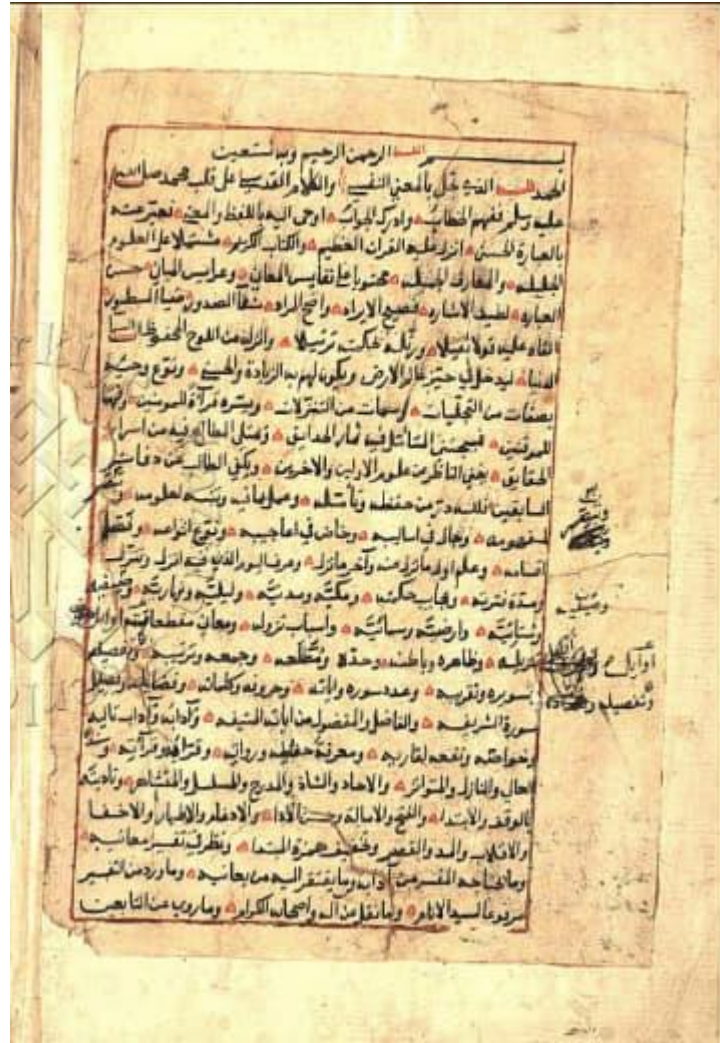 بسم الله الرحمن الرحيم وبه نستعين
الحمد لله الذي تجلى بالمعنى النفسي والكلام القدسي على قلب محمد صلى الله
عليه وسلم ففهم الخطاب وادرك الجواب اوحى اليه باللفظ والمعنى فعبر عنه
بالعبارة الحسنى انزل عليه القران العظيم والكتاب الكريم مشتملا على العلوم
الجليله والمعارف الجميله محتويا على نفايس المعاني وعرايس المباني حسن
العباره لطيف الاشاره فصيح الايراد واضح المراد شفآ الصدور ضيا السطور
القاه عليه قولا ثقيلا ورتله لحكمة ترتيلا وانزله من اللوح المحفوظ الى السما
الدنيا ليدخل في حيز عالم الارض ويكون لهم به الزيادة والحسنى ونوع وحيه
بصفات من التجليات وسمات من التنزلات ويسره قرآة للمومنين وفهما
للموقنين فيجتنى المتامل فيه ثمار الحدايق
الحقايق يغنى الناظر من علوم الاولين والاخرين ويكفي الطالب عن دفاتر
السابقين فلله در من حفظه وتأمله وعمل بما فيه
وجال في اساليبه وخاض في اعاجيبه ونوع انواعه وفصل
اقسامه وعلم اول ما نزل منه وآخر ما نزل وعرف اليوم الذي فيه انزل
ومدة نزوله وعجايب حكمته ومكيه ومدنيه وليليه ونهاريه وصيفيه
وشتائيه وارضيه وسمائيه واسباب نزوله ومعاني مقطعاته
تنزيله وظاهره وباطنه وحده ومطلعه وجمعه وترتيبه وتفصيله
بسوره وتقريبه وعدد سوره واياته وحروفه وكلماته وفضايله وتفضيل
سورة الشريفه والفاضل والمفضول من اياته المنيفه وآدابه وآداب تاليه
وخواصه ونفعه لقاريه ومعرفة حفاظه ورواته وقراءه وقرآته
العالي والنازل والمتواتر والاحاد والشاذ والمدرج والمسلسل والمتشابه وتاديته
بالوقف والابتدا والفتح والامالة وحسن الادا والادغام والاظهار والاخفا
والاقلاب والمد والقصر وتخفيف همزة المبتدا ونظر في تفسير معانيه
وما يحتاجه المفسر من آداب وما يفتقر اليه من يعانيه وما ورد من التفسير
مرفوعا لسيد الانام وما نقل عن آله واصحابه الكرام وما روي عن التابعين